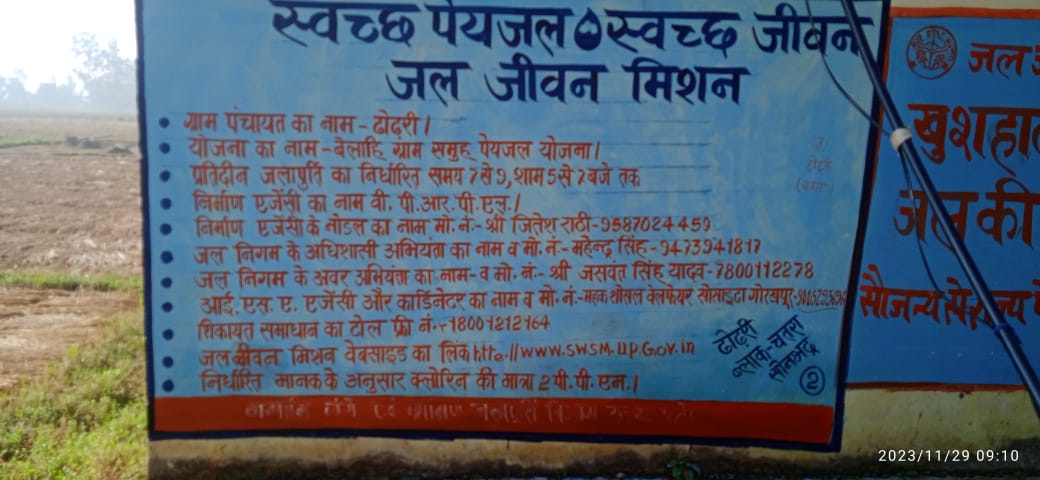 स्वच्छ पेयजल स्वच्छ जीवन
जल जीवन मिशन
ग्राम पंचायत का नाम - ढोढरी।
योजना का नाम - बेलाहि ग्राम समुह पेयजल योजना।
प्रतिदीन जलापुर्ति का निर्धारित समय 7 से 9, शाम 5 से 7 बजे तक
निर्माण एजेंसी का नाम वी. पी. आर. पी. एल.।
निर्माण एजेंसी के नोडल का नाम मो. नं.- श्री जितेश राठी - 9587024459
जल निगम के अधिशासी अभियंता का नाम व मो. नं.- महेन्द्र सिंह - 9473941817
जल निगम के अवर अभियंता का नाम - व मो. नं.- श्री जसवंत सिंह यादव - 7800112278
आई. एस. ए. एजेंसी और कार्डिनेटर का नाम व मो. नं.- महक शोसल वेलफेयर सोसाइटी गोरखपुर -
शिकायत समाधान का टोल फ्री नं. - 18001212164
जल जीवन मिशन वेबसाइड का लिंक http.//www.swsm.up.Gov.in
निर्धारित मानक के अनुसार क्लोरिन की मात्रा 2 पी. पी. एम.।
ढोढरी
ब्लाक चतरा
सोनभद्र
2
जल
खुशहा
जल की
सौजन्य से राज्य पे
2023/11/29 09:10